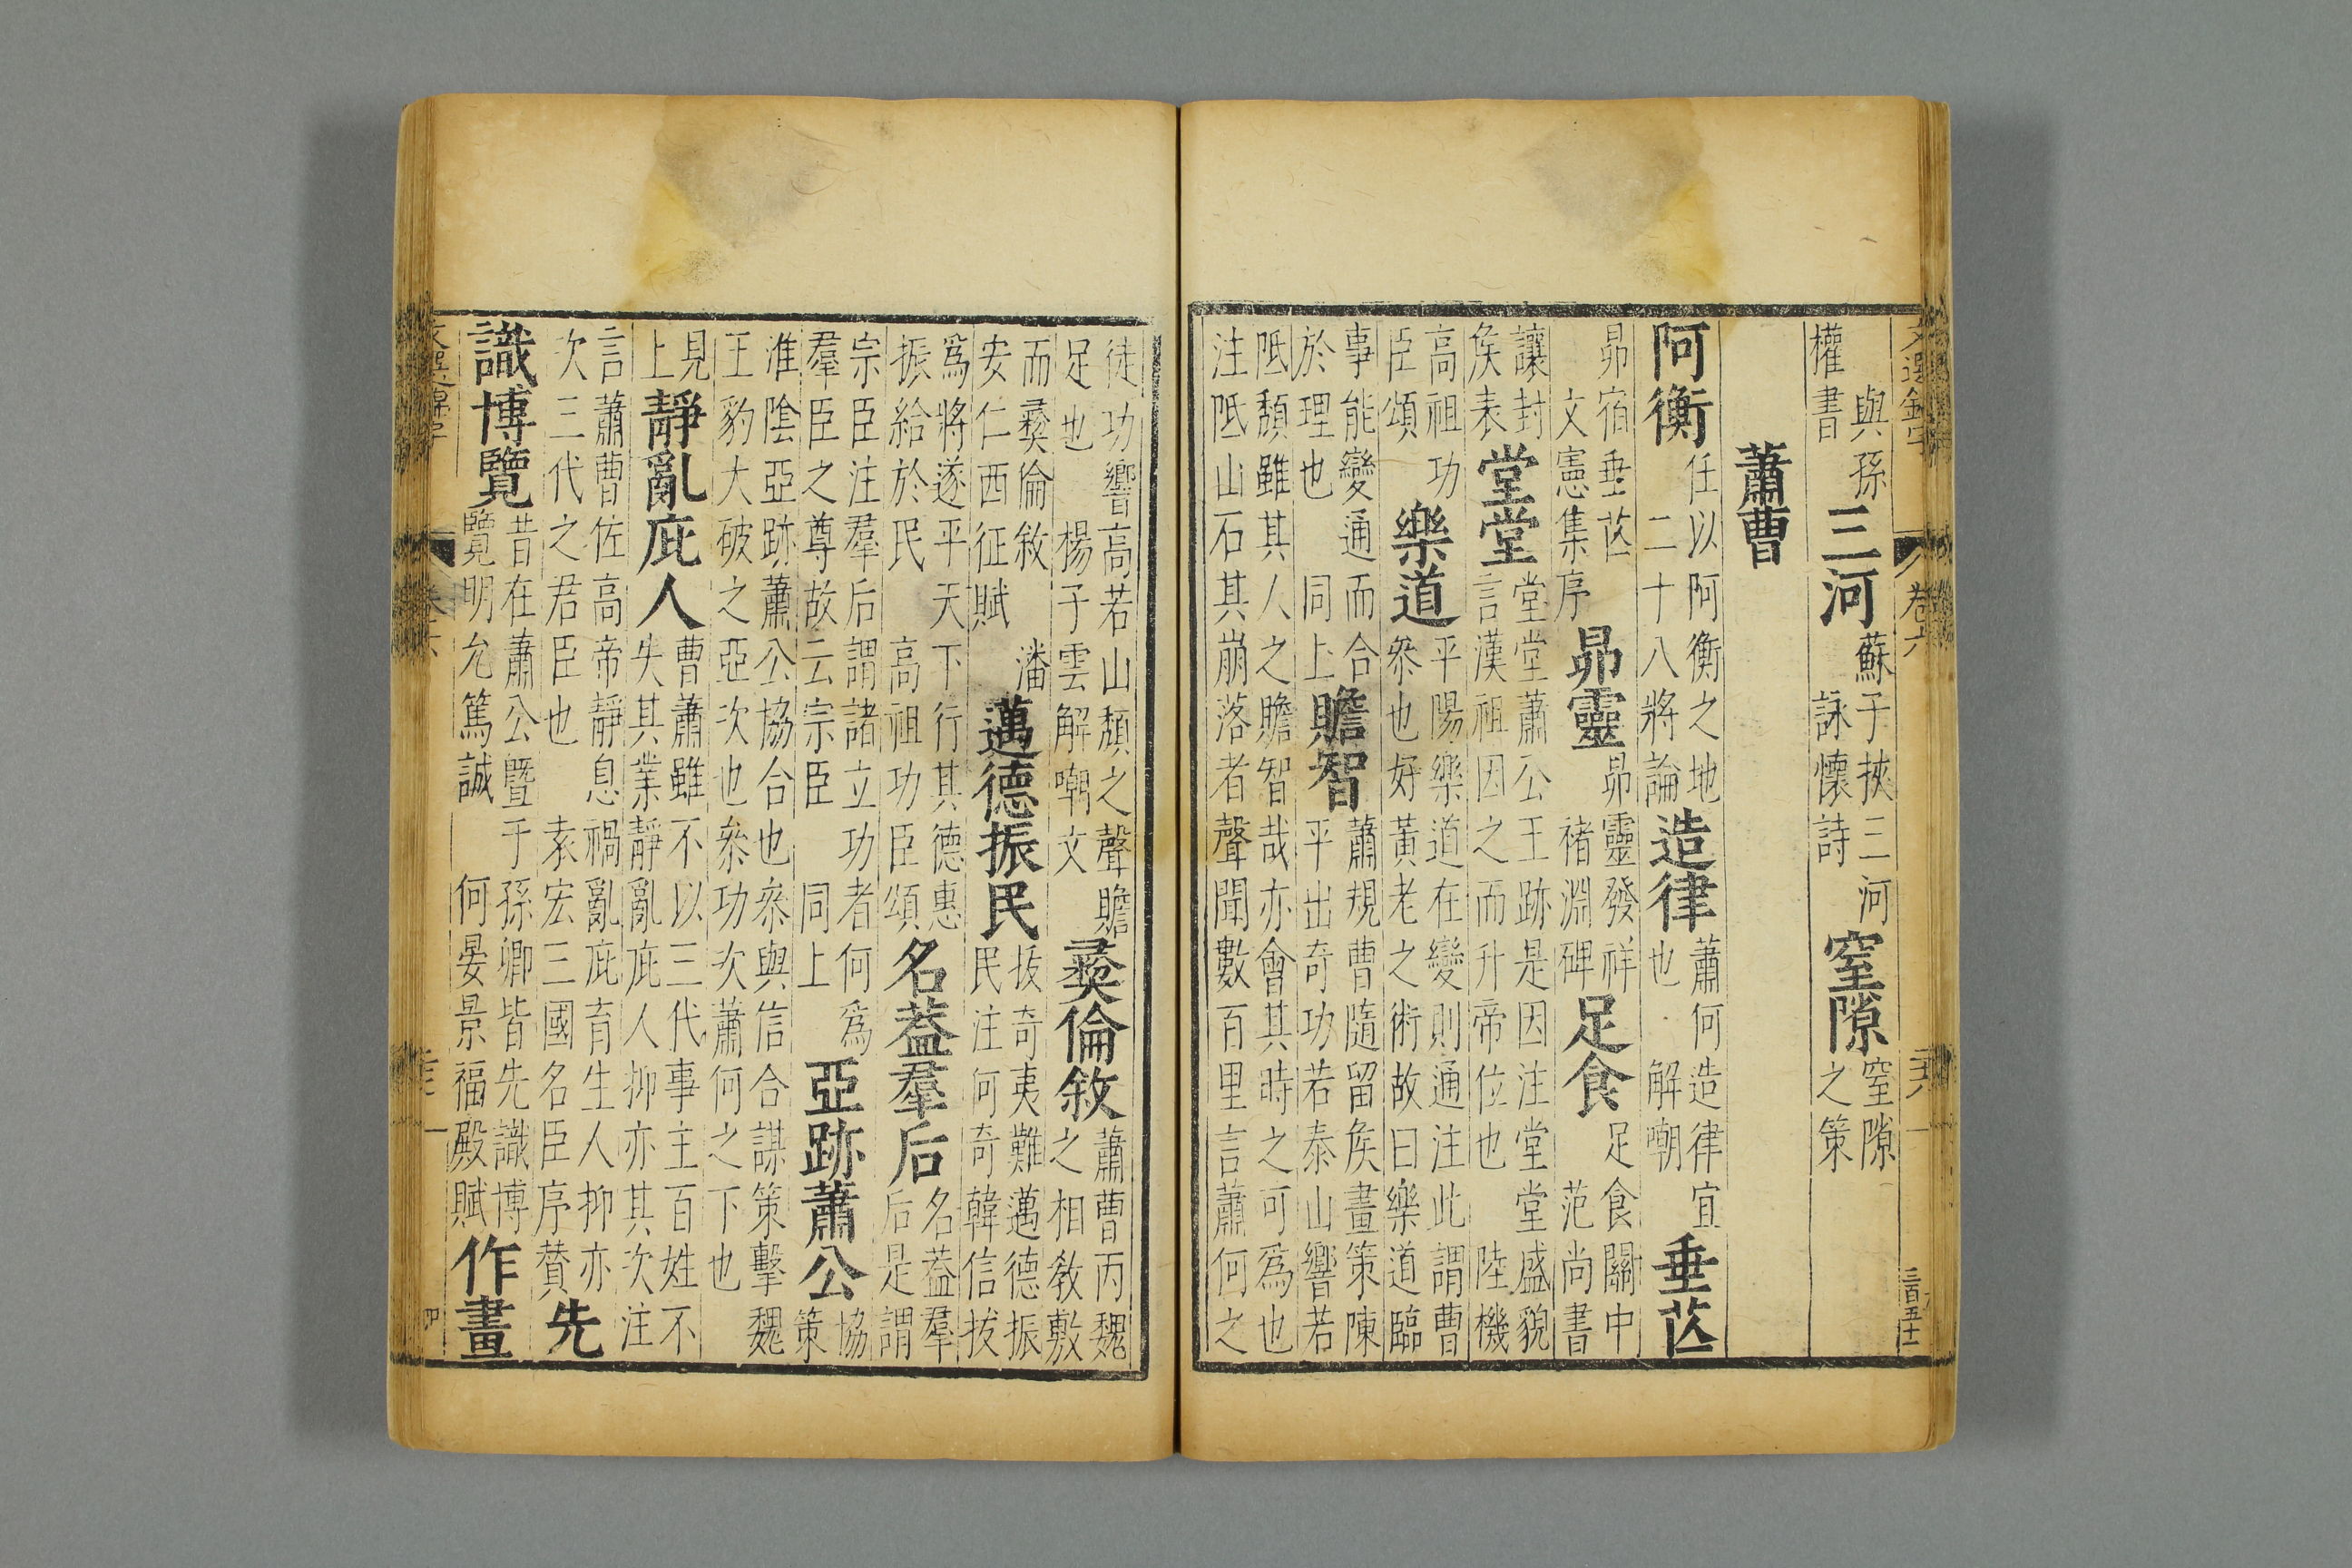 與孫
權書
三河
蘇子挾三河
詠懷詩
窒隙
窒隙
之策
蕭曹
阿衡
任以阿衡之地
二十八將論
造律
蕭何造律宜
也 解嘲
垂芒
昴宿垂芒
文憲集序
昴靈
昴靈發祥
褚淵碑
足食
足食關中
范尚書
讓封
侯表
堂堂
堂堂蕭公王跡是因注堂堂盛貌
言漢祖因之而升帝位也 陸機
高祖功
臣頌
樂道
平陽樂道在變則通注此謂曹
參也好黃老之術故曰樂道臨
事能變通而合
於理也 同上
贍智
蕭規曹隨留侯畫策陳
平出奇功若泰山響若
阺頹雖其人之贍智哉亦會其時之可爲也
注阺山石其崩落者聲聞數百里言蕭何之
卷六
徒功響高若山頹之聲贍
足也 楊子雲解嘲文
彞倫敘
蕭曹丙魏
之相敎敷
而彞倫敘 潘
安仁西征賦
邁德振民
拔奇夷難邁德振
民注何奇韓信拔
爲將遂平天下行其德惠
振給於民 高祖功臣頌
名葢羣后
名葢羣
后是謂
宗臣注羣后謂諸立功者何爲
羣臣之尊故云宗臣 同上
亞跡蕭公
協
策
淮陰亞跡蕭公協合也參與信合謀策擊魏
王豹大破之亞次也參功次蕭何之下也
見
上
靜亂庇人
曹蕭雖不以三代事主百姓不
失其業靜亂庇人抑亦其次注
言蕭曹佐高帝靜息禍亂庇育生人抑亦
次三代之君臣也 袁宏三國名臣序贊
先
識博覽
昔在蕭公暨于孫卿皆先識博
覽明允篤誠 何晏景福殿賦
作畫